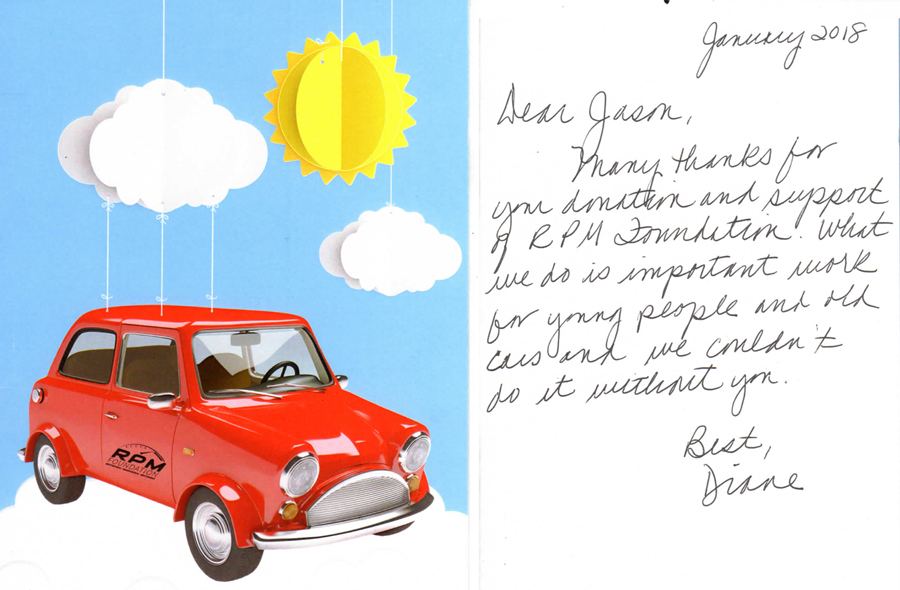 RPM
FOUNDATION
January 2018
Dear Jason,
Many thanks for
your donation and support
of RPM Foundation. What
we do is important work
for young people and old
cars and we couldn't
do it without you.
Best,
Diane